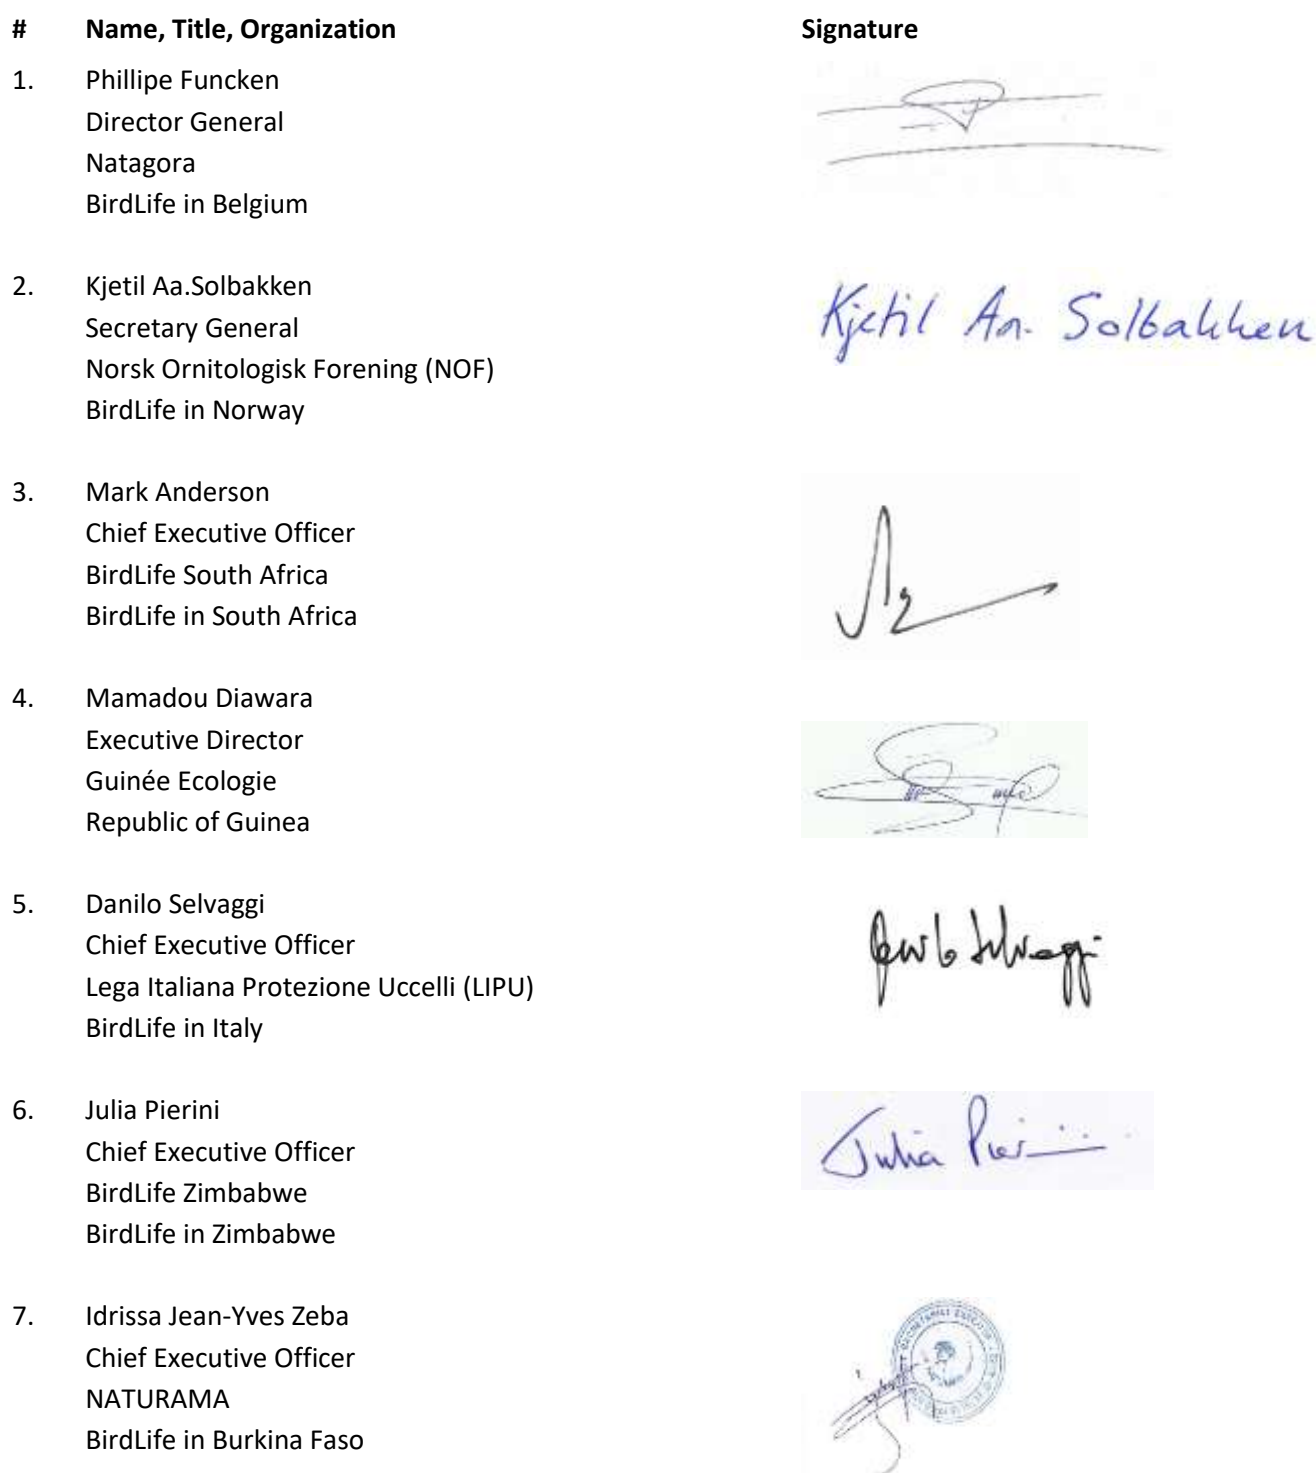 # Name, Title, Organization Signature
1. Phillipe Funcken
Director General
Natagora
BirdLife in Belgium
2. Kjetil Aa.Solbakken Kjetil Aa. Solbakken
Secretary General
Norsk Ornitologisk Forening (NOF)
BirdLife in Norway
3. Mark Anderson
Chief Executive Officer
BirdLife South Africa
BirdLife in South Africa
4. Mamadou Diawara
Executive Director
Guinée Ecologie
Republic of Guinea
5. Danilo Selvaggi Danilo Selvaggi
Chief Executive Officer
Lega Italiana Protezione Uccelli (LIPU)
BirdLife in Italy
6. Julia Pierini Julia Pierini
Chief Executive Officer
BirdLife Zimbabwe
BirdLife in Zimbabwe
7. Idrissa Jean-Yves Zeba
Chief Executive Officer
NATURAMA
BirdLife in Burkina Faso